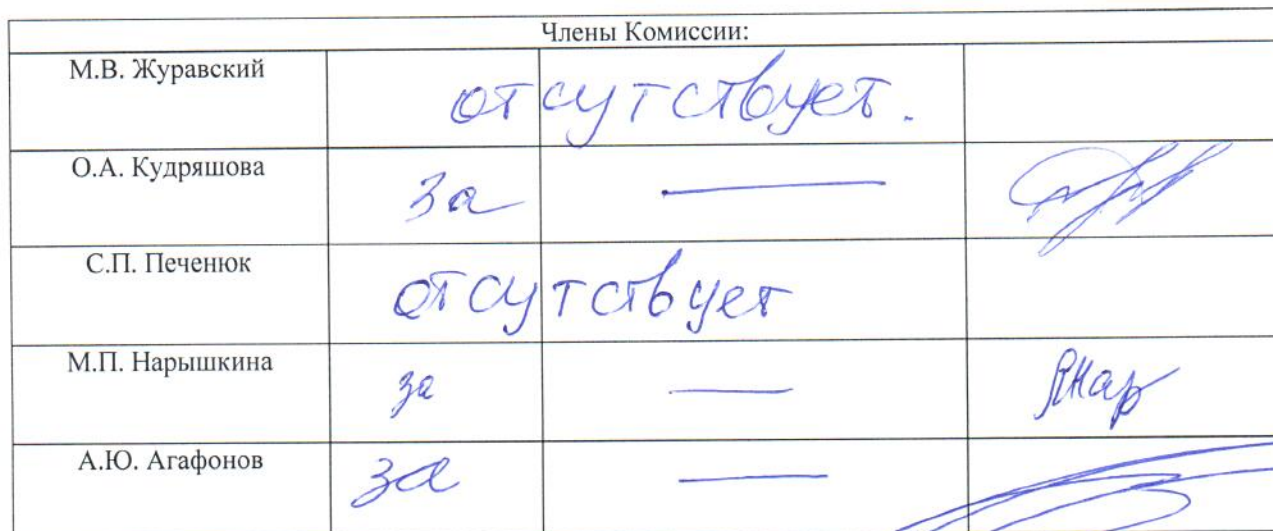 Члены Комиссии:
М.В. Журавский отсутствует.
О.А. Кудряшова за —
С.П. Печенюк отсутствует
М.П. Нарышкина за —
А.Ю. Агафонов за —